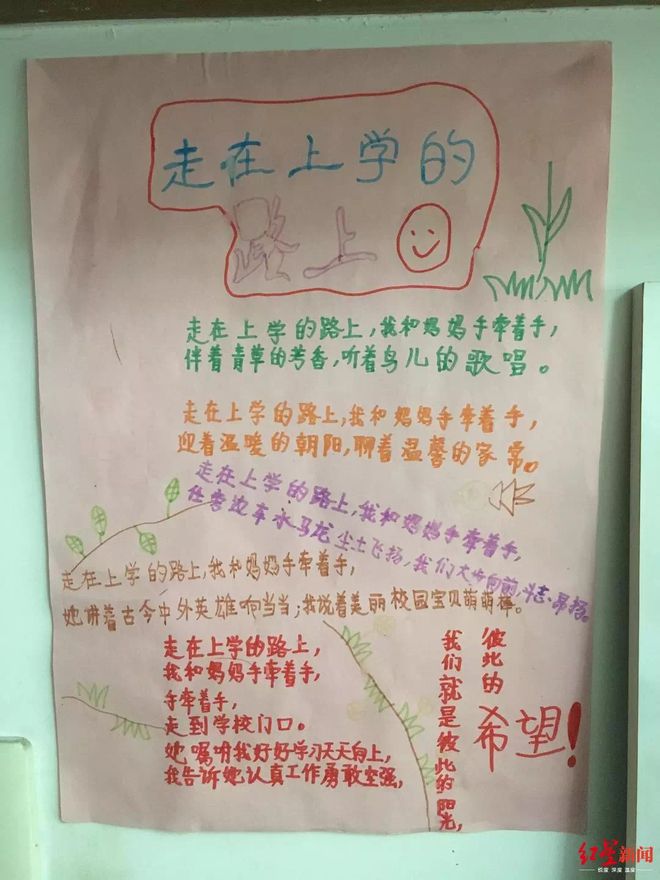 走在上学的
路上
走在上学的路上，我和妈妈手牵着手，
伴着青草的芳香，听着鸟儿的歌唱。
走在上学的路上，我和妈妈手牵着手，
迎着温暖的朝阳，聊着温馨的家常。
走在上学的路上，我和妈妈手牵着手，
任旁边车水马龙尘土飞扬，我们大步向前，斗志昂扬。
走在上学的路上，我和妈妈手牵着手，
她讲着古今中外英雄响当当；我说着美丽校园宝贝萌萌样。
走在上学的路上，
我和妈妈手牵着手，
手牵着手，
走到学校门口。
她嘱咐我好好学习天天向上，
我告诉她认真工作勇敢坚强，
我们就是彼此的阳光，
彼此的
希望！
红星新闻
锐度 深度 温度